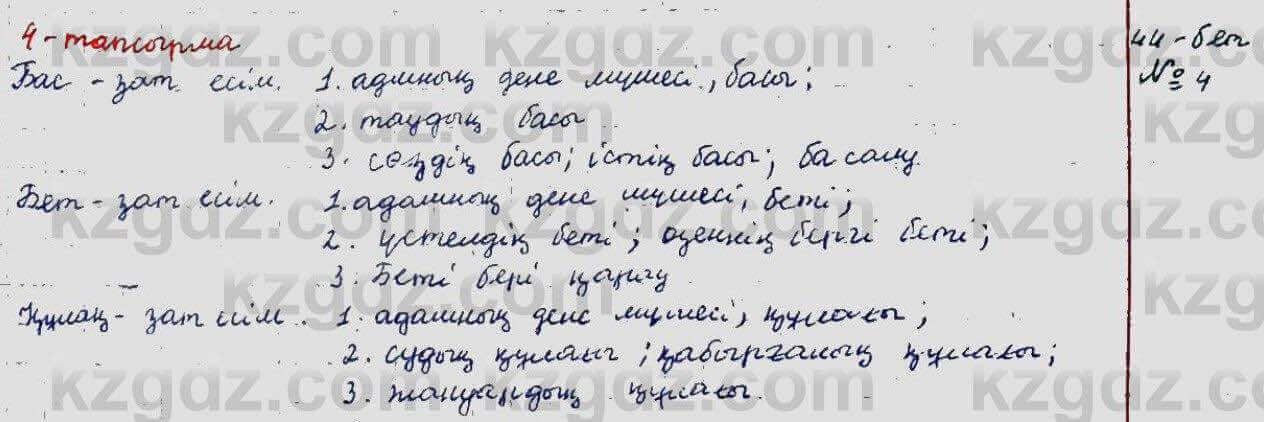 4-тапсырма
44-бет
№ 4
Бас - зат есім. 1. адамның дене мүшесі, басы;
2. таудың басы
3. сөздің басы; істің басы; ба салу.
Бет - зат есім. 1. адамның дене мүшесі, беті;
2. үстелдің беті; өзеннің бергі беті;
3. Беті бері қарау
Құлақ - зат есім. 1. адамның дене мүшесі, құлағы;
2. судың құлағы; қабырғаның құлағы;
3. жануардың құлағы.
kzgdz.com